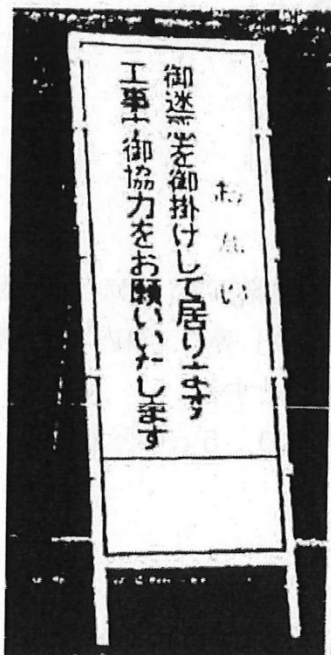 お願い
御迷惑を御掛けして居ります
工事中御協力をお願いいたします